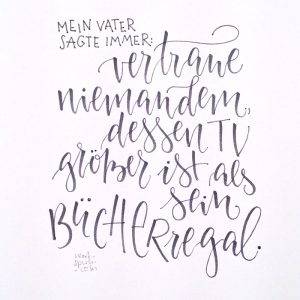 MEIN VATER
SAGTE IMMER:
vertraue
niemandem,
dessen TV
größer ist als
sein
BÜCHERregal.